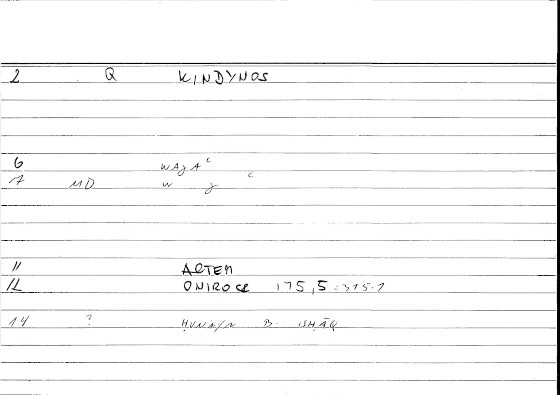 2 Q KINDYNOS
6 WAJAʿ
7 MD W J ʿ
11 ARTEM
12 ONIROCR 175,5 = 315.7
14 ? ḤUNAYN B. ISḤĀQ